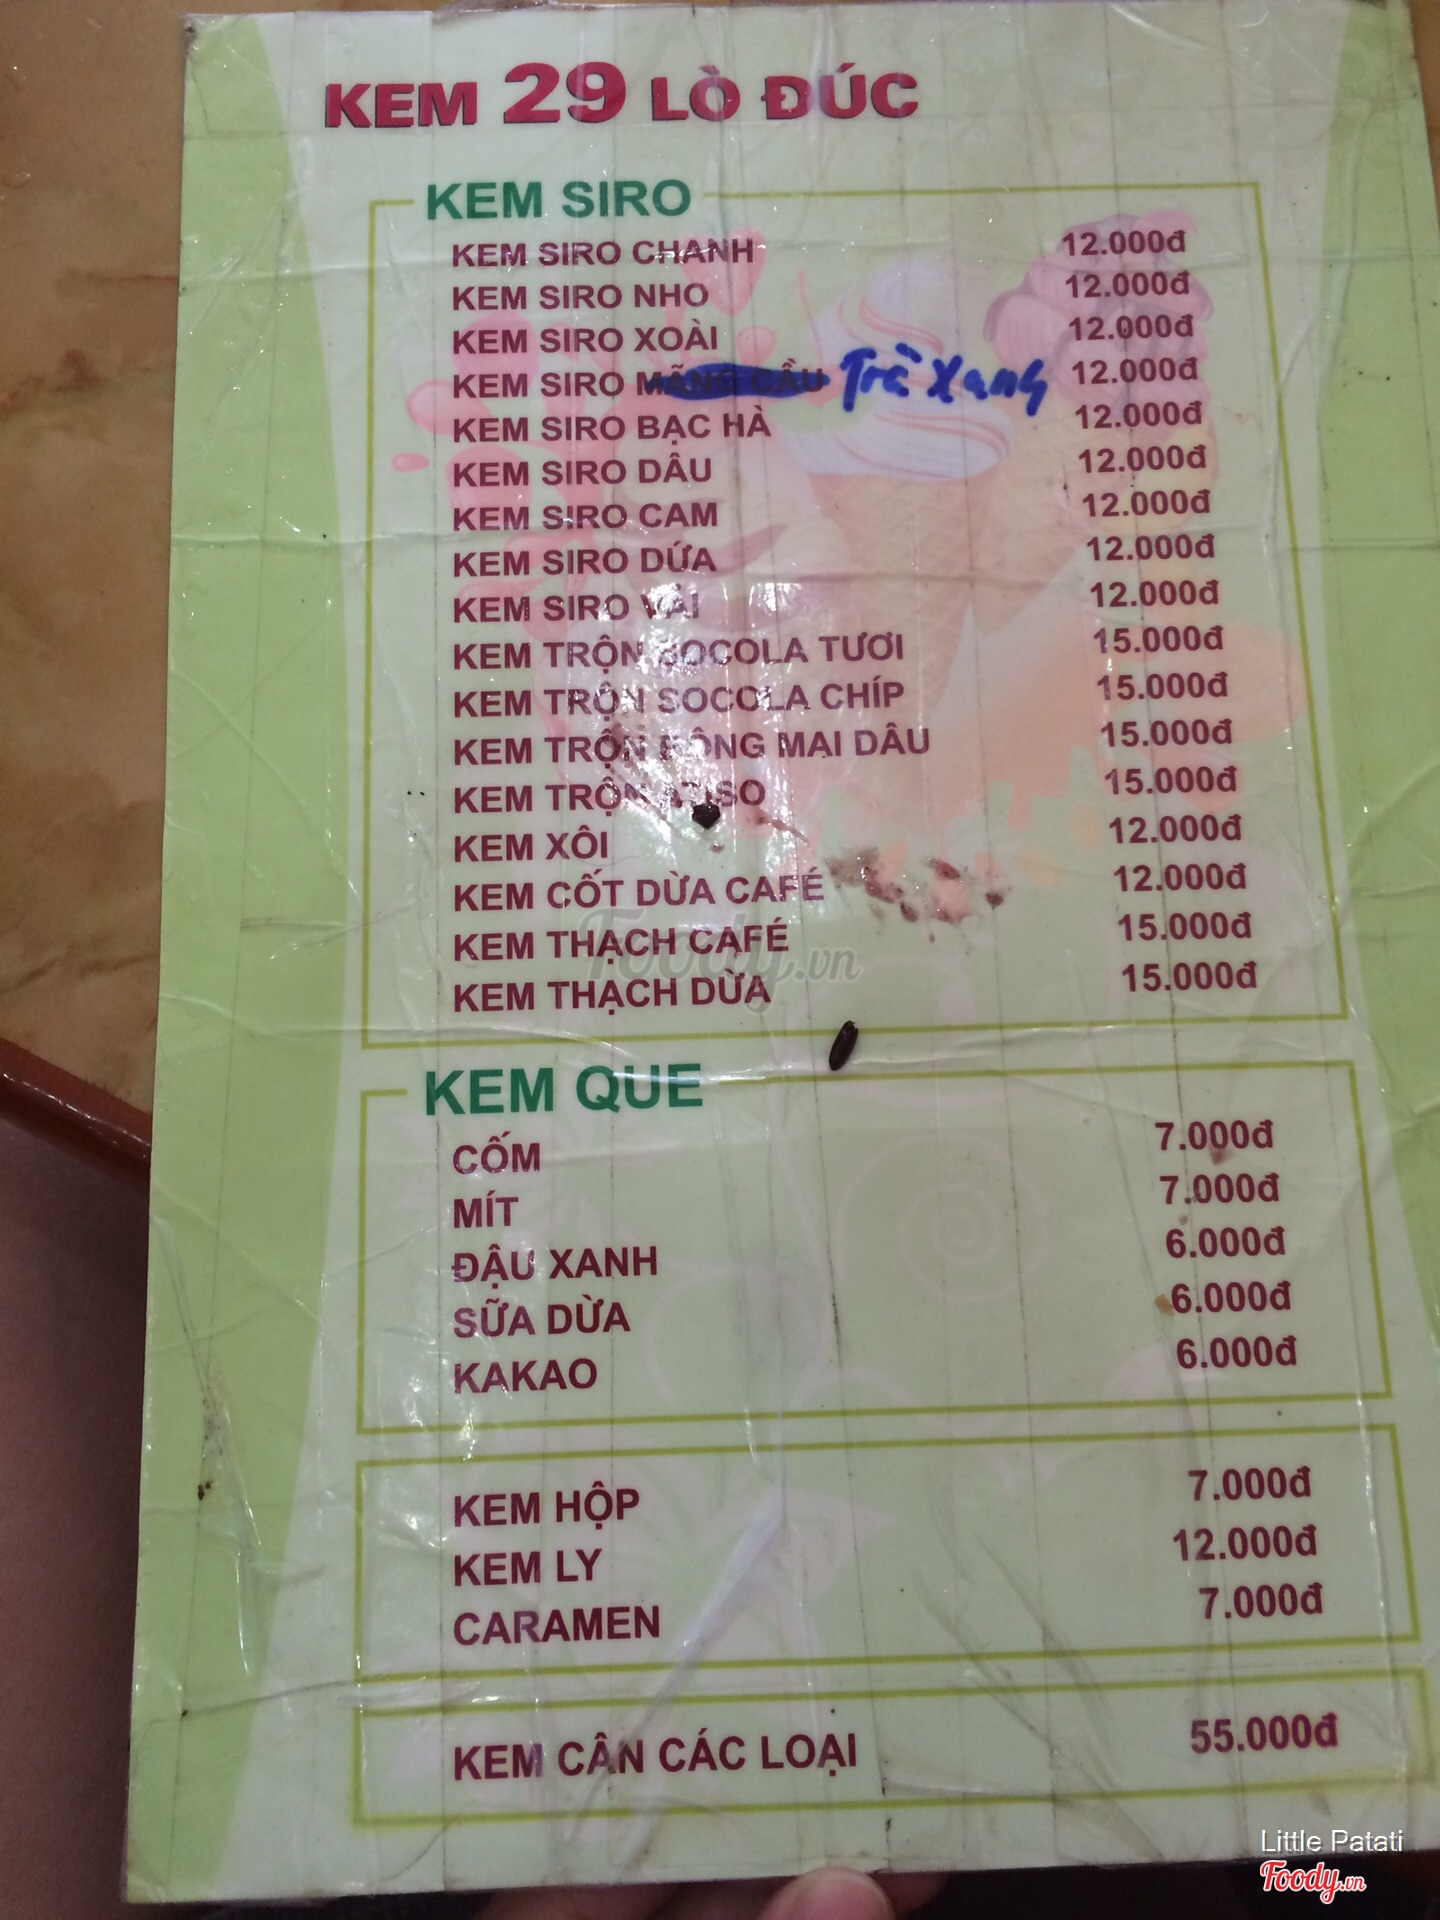 KEM 29 LÒ ĐÚC
KEM SIRO
KEM SIRO CHANH 12.000đ
KEM SIRO NHO 12.000đ
KEM SIRO XOÀI 12.000đ
KEM SIRO MÃNG CẦU Trà Xanh 12.000đ
KEM SIRO BẠC HÀ 12.000đ
KEM SIRO DÂU 12.000đ
KEM SIRO CAM 12.000đ
KEM SIRO DỨA 12.000đ
KEM SIRO VẢI 12.000đ
KEM TRỘN SOCOLA TƯƠI 15.000đ
KEM TRỘN SOCOLA CHÍP 15.000đ
KEM TRỘN HỒNG MAI DÂU 15.000đ
KEM TRỘN 15.000đ
KEM XÔI 12.000đ
KEM CỐT DỪA CAFÉ 12.000đ
KEM THẠCH CAFÉ 15.000đ
KEM THẠCH DỪA 15.000đ
Foody.vn
KEM QUE
CỐM 7.000đ
MÍT 7.000đ
ĐẬU XANH 6.000đ
SỮA DỪA 6.000đ
KAKAO 6.000đ
KEM HỘP 7.000đ
KEM LY 12.000đ
CARAMEN 7.000đ
KEM CÂN CÁC LOẠI 55.000đ
Little Patati
Foody.vn